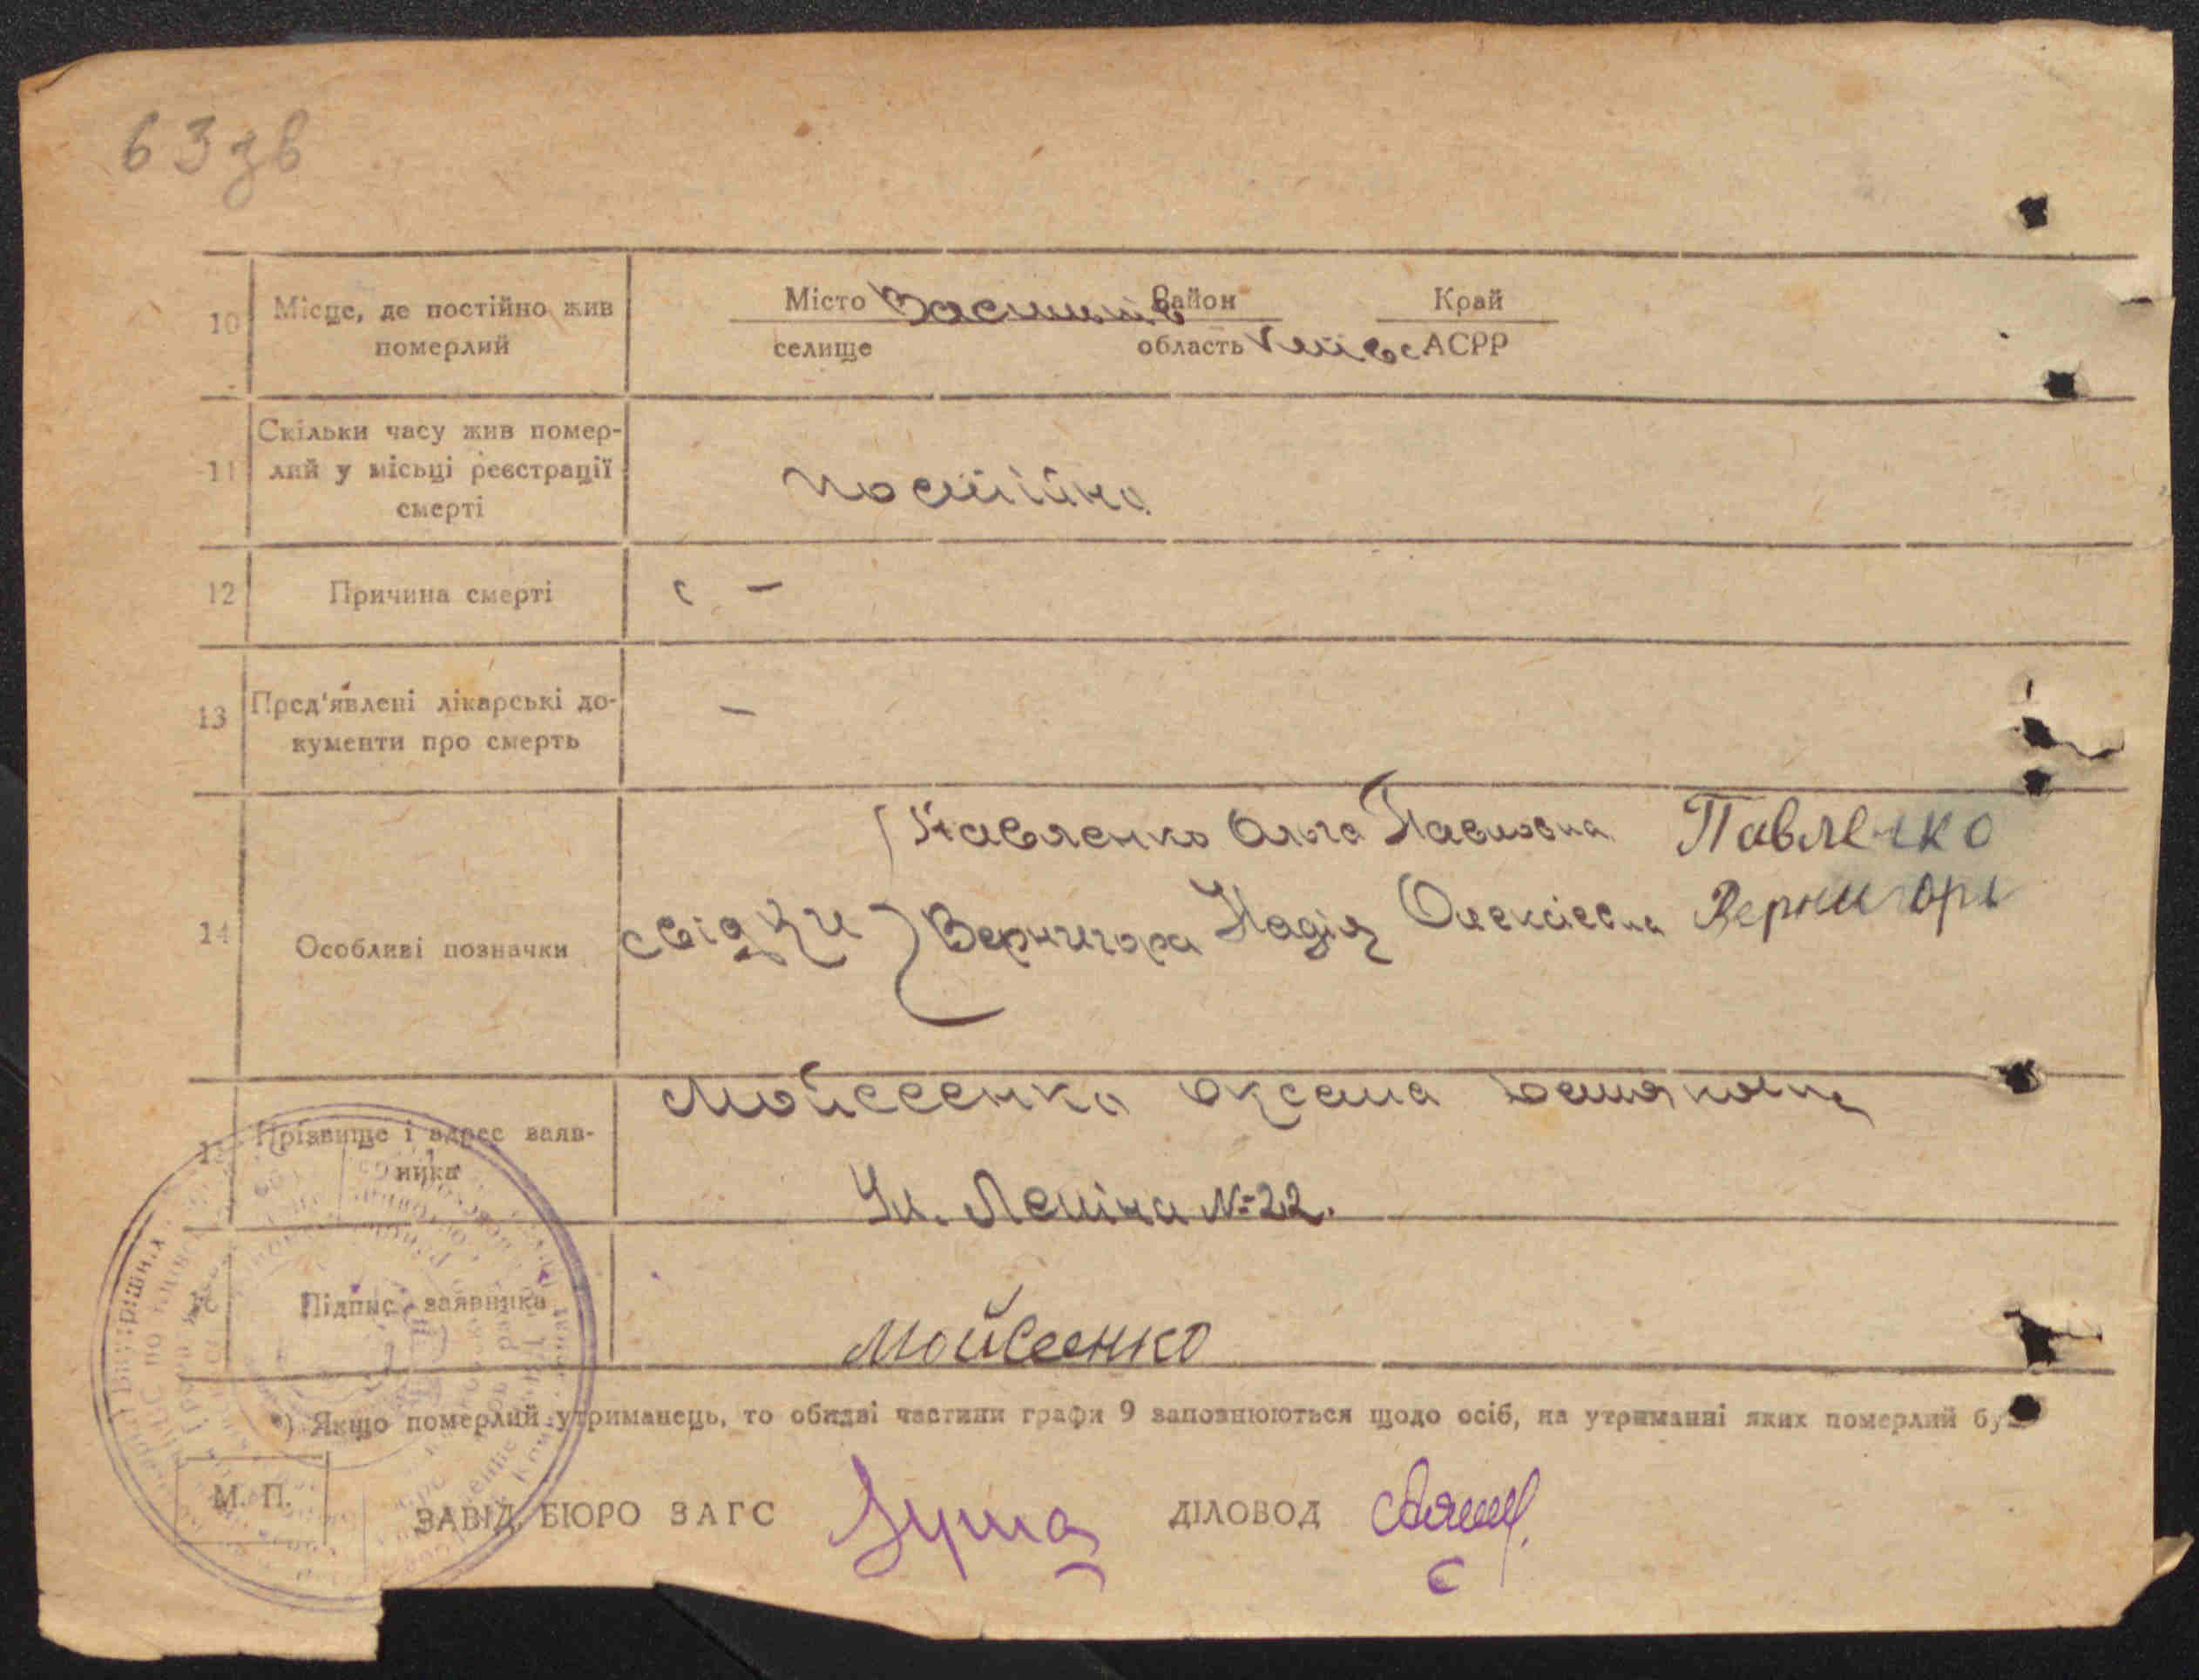 63 зв
10 Місце, де постійно жив померлий
Місто Васильків Район Край
селище область Київс АСРР
11 Скільки часу жив помер-
лий у місьці реєстрації
смерті
постійно
12 Причина смерті –
13 Пред'явлені лікарські до-
кументи про смерть –
Павленко Ольга Павловна Павленко
14 Особливі позначки свідки Вернигора Надія Олексієвна Вернигора
Мойсеенко Оксана
15 Прізвище і адрес заяв-
ника
Ул. Леніна № 22.
Підпис заявника
Мойсеенко
*) Якщо померлий утриманець, то обидві частини графи 9 заповнюються щодо осіб, на утриманні яких померлий був
М. П.
ЗАВІД. БЮРО ЗАГС ДІЛОВОД